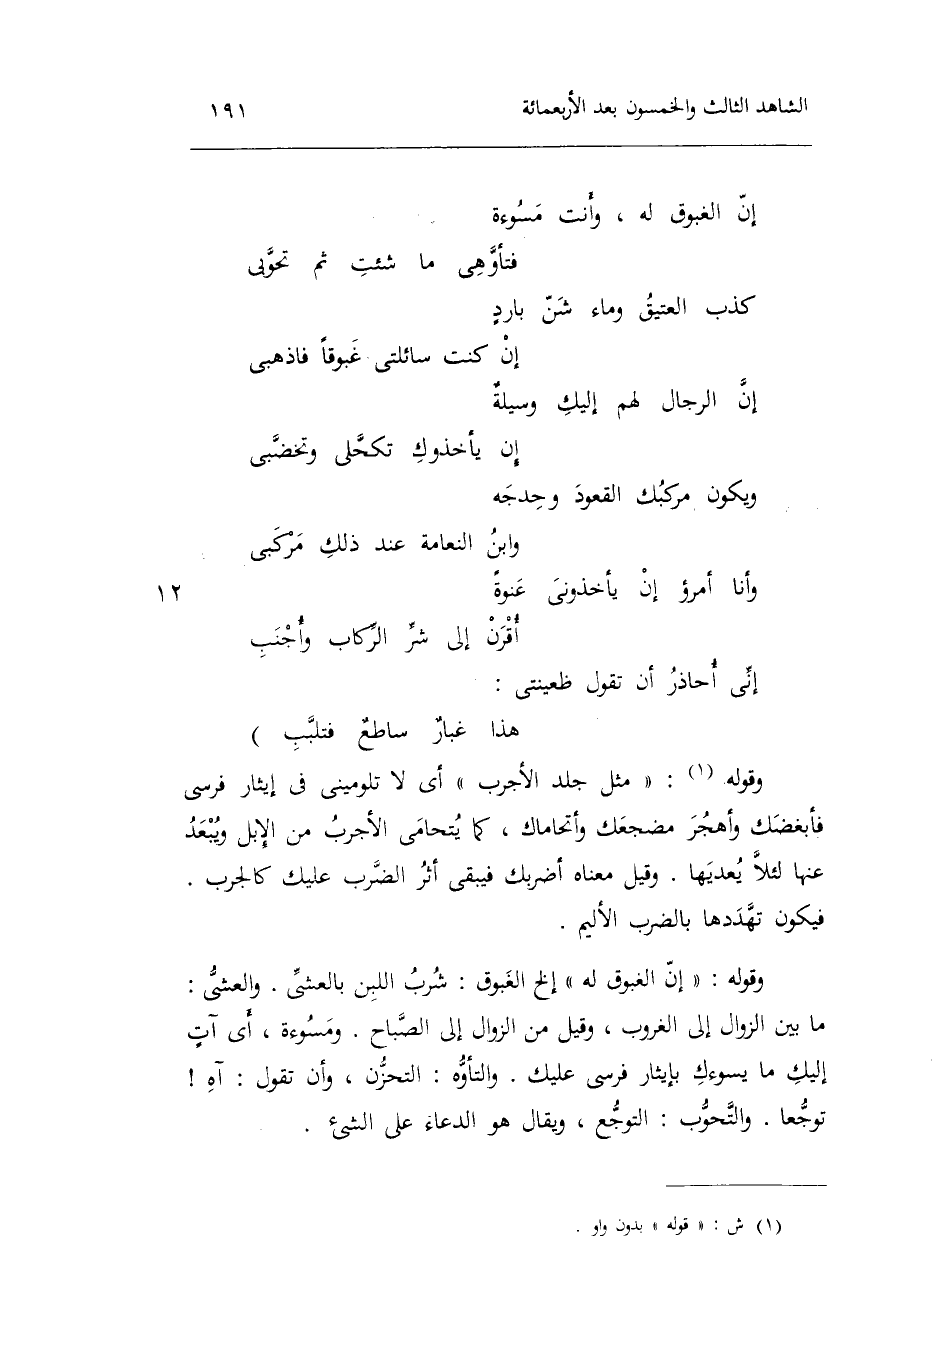 الشاهد الثالث والخمسون بعد الأربعمائة ١٩١
إنّ الغبوق له ، وأَنت مَسُوءة
فتأوَّهِى ما شئتِ ثم تحوَّبى
كذب العتيقُ وماء شَنّ باردٍ
إنْ كنت سائلتى غَبوقاً فاذهبى
إنَّ الرجال لهم إليكِ وسيلةٌ
إن يأخذوكِ تكحَّلى وتخضَّبى
ويكون مركبُك القعودَ وحِدجَه
وابنُ النعامة عند ذلكِ مَرْكَبى
وأنا أمرؤ إنْ يأخذونىَ عَنوةً ١٢
أُقْرَنْ إلى شرِّ الرِّكاب وأُجْنَبِ
إنِّى أُحاذرُ أن تقول ظعينتى :
هذا غبارٌ ساطعٌ فتلبَّبِ )
وقوله (١) : « مثل جلد الأجرب » أى لا تلومينى فى إيثار فرسى
فأبغضَك وأهجُرَ مضجعَك وأتحاماك ، كما يُتحامَى الأجربُ من الإبل ويُبْعَدُ
عنها لئلاَّ يُعديَها . وقيل معناه أضربك فيبقى أثرُ الضَّرب عليك كالجرب .
فيكون تهَّدَدها بالضرب الأليم .
وقوله : « إنّ الغبوق له » إلخ الغَبوق : شُربُ اللبن بالعشىِّ . والعشىُّ :
ما بين الزوال إلى الغروب ، وقيل من الزوال إلى الصَّباح . ومَسُوءة ، أَى آتٍ
إليكِ ما يسوءكِ بإيثار فرسى عليك . والتأوُّه : التحزُّن ، وأن تقول : آهِ !
توجُّعا . والتَّحوُّب : التوجُّع ، ويقال هو الدعاء على الشىء .
(١) ش : « قوله » بدون واو .